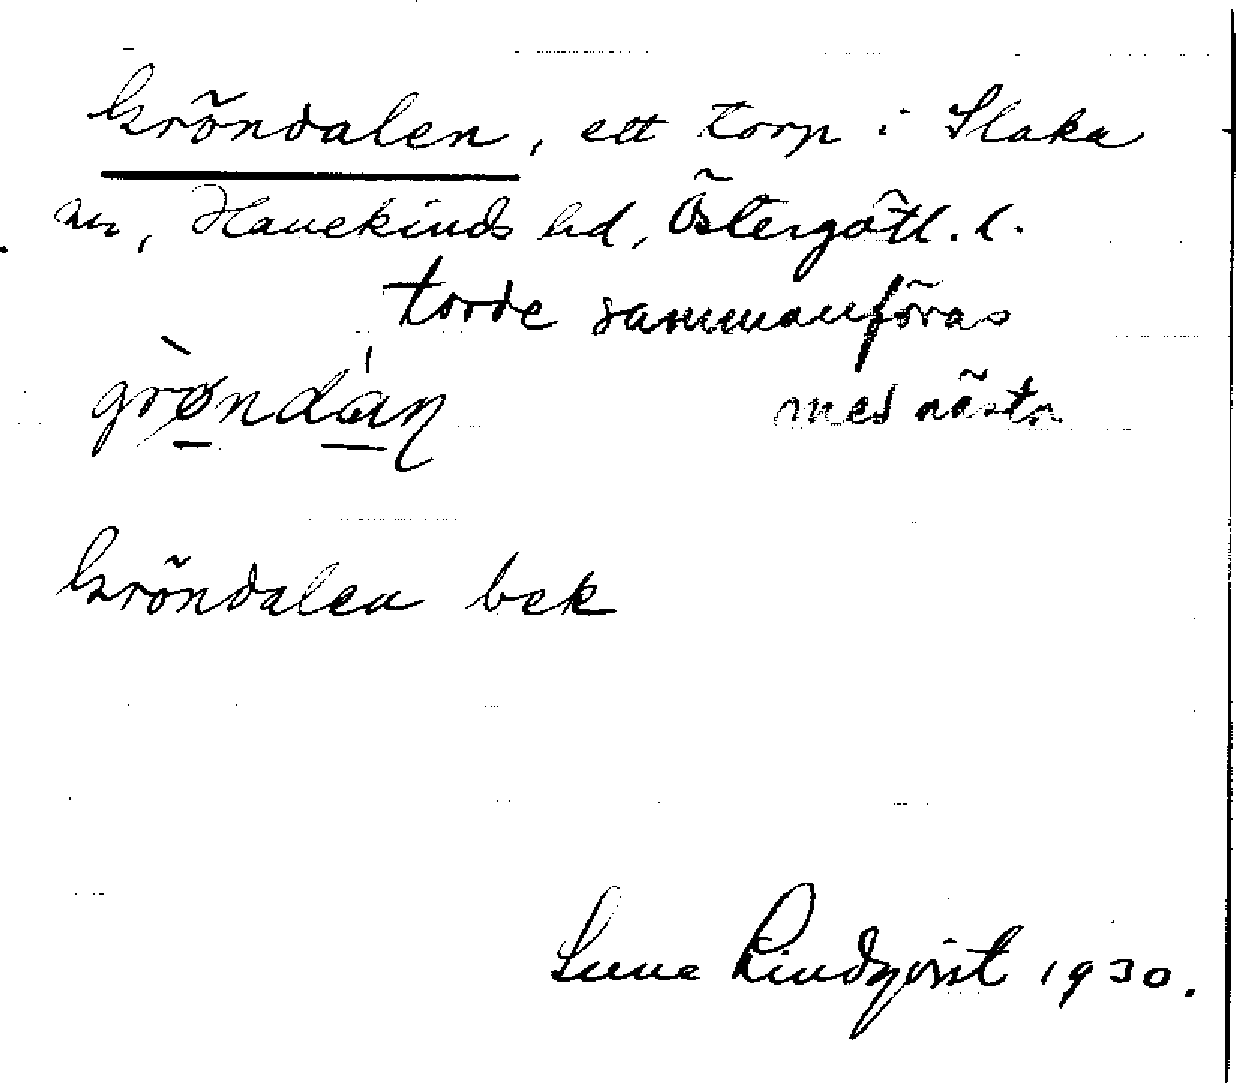 Gröndalen, ett torp i Slaka
sn, Hanekinds hd, Östergötl. l.
torde sammanföras
grøndàn med nästa
Gröndalen bek
Sune Lindqvist 1930.